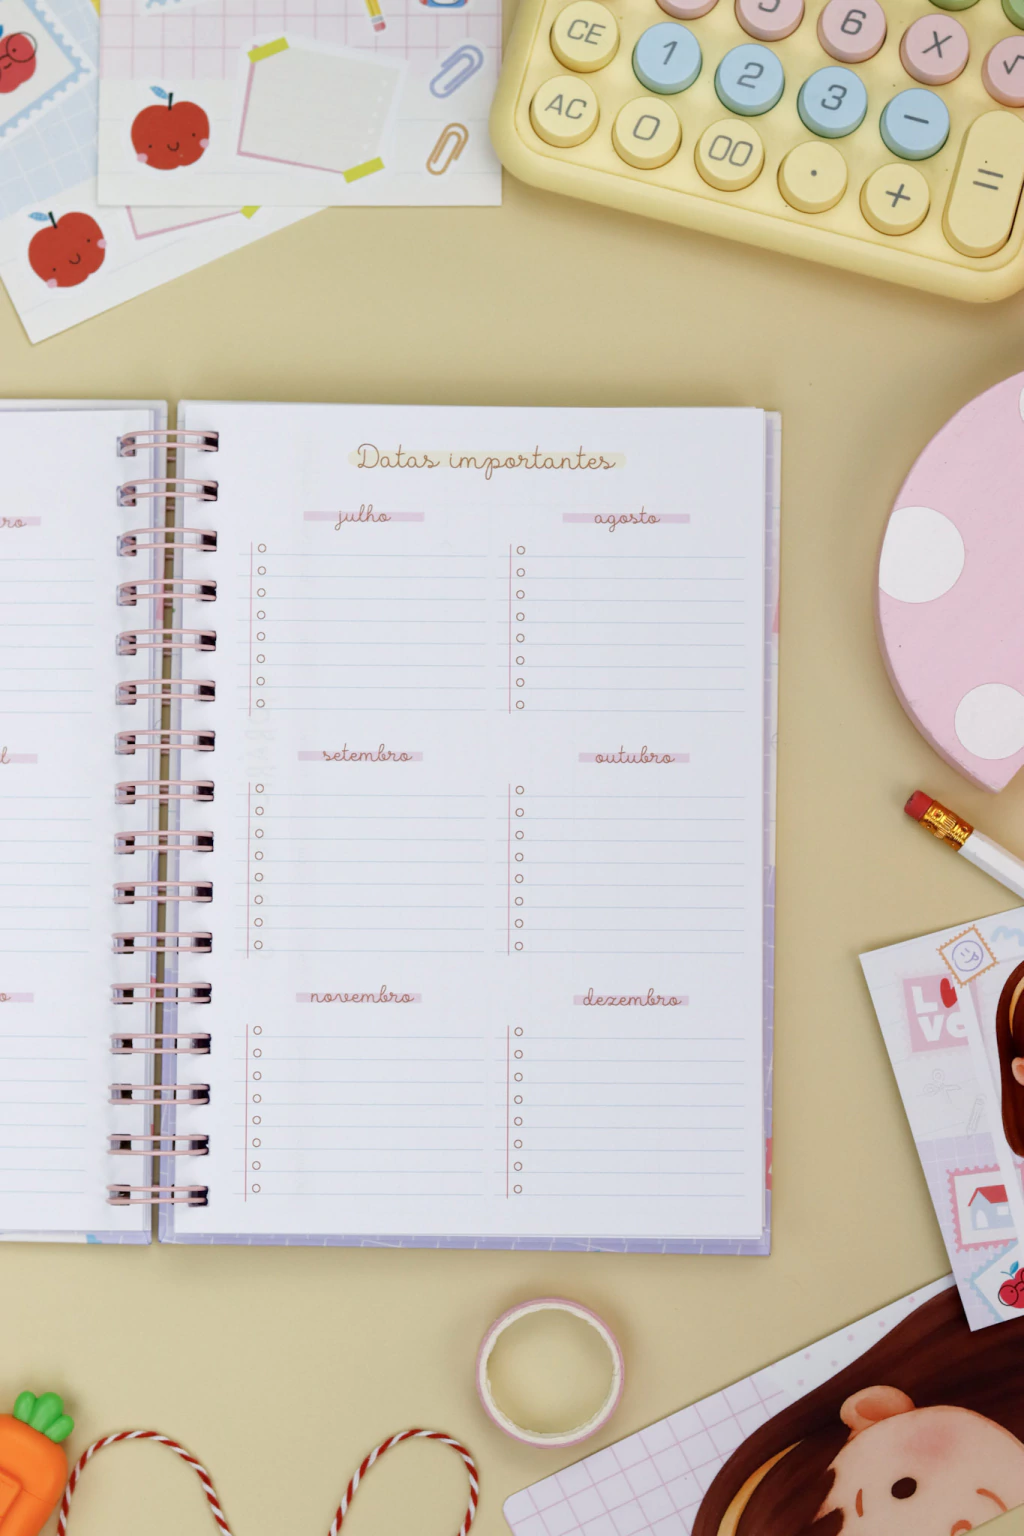 CE 1 2 3 −
5 6 X √
AC 0 00 . + =
Datas importantes
julho
agosto
setembro
outubro
novembro
dezembro